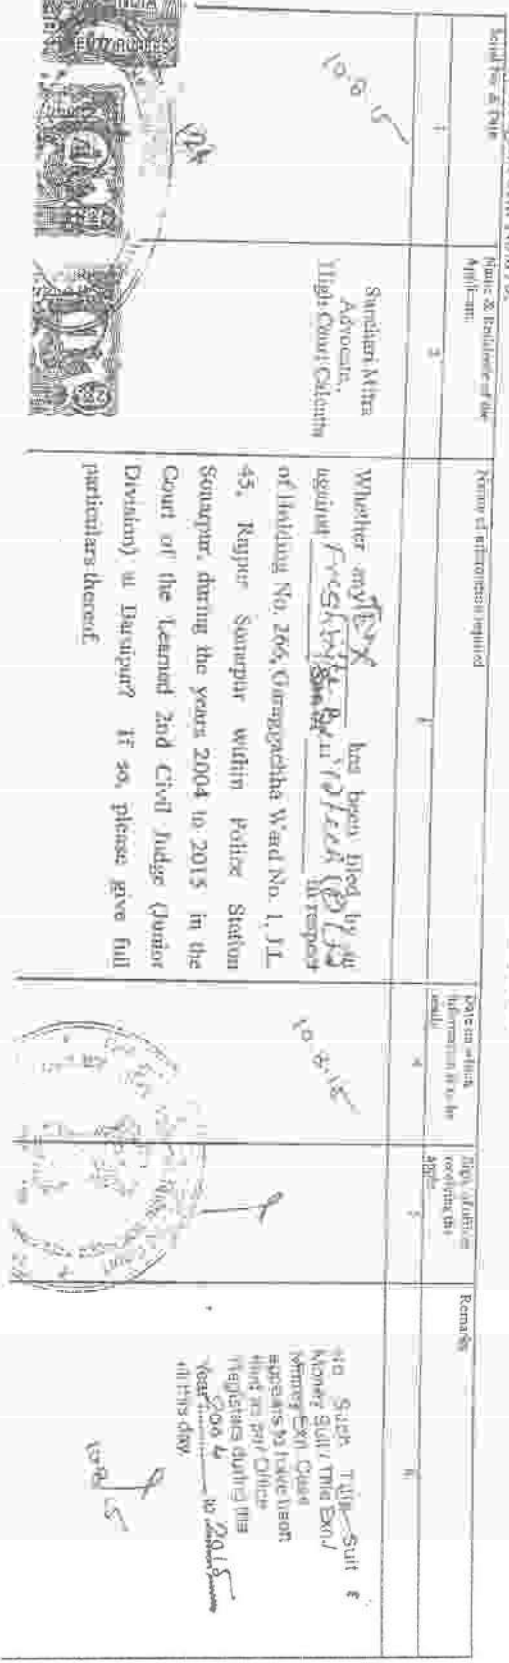 Serial No. & Date
Name & Residence of the
Applicant.
Nature of information required
Date on which
information is to be
ready
Sign. of officer
receiving the
Appln.
Remarks
1
2
4
5
6
10.8.15
Advocate,
High Court Calcutta
Whether any has been filed by or
against in respect
of Holding No. 266, Ward No. 1, J.L.
45, Rajpur Sonarpur within Police Station
Sonarpur, during the years 2004 to 2015 in the
Court of the Learned 2nd Civil Judge (Junior
Division) at Baruipur? If so, please give full
particulars thereof.
10.8.15
No Such Title Suit &
Money Suit / Title Exn./
Money Exn. Case
appears to have been
filed as per Office
Registers during the
Year 2004 to 2015
till this day.
INDIA